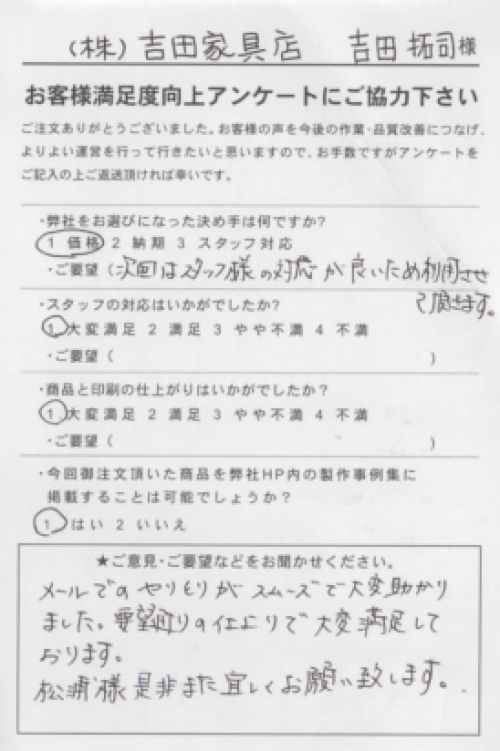 (株)吉田家具店 吉田 拓司様
お客様満足度向上アンケートにご協力下さい
ご注文ありがとうございました。お客様の声を今後の作業・品質改善につなげ、
よりよい運営を行って行きたいと思いますので、お手数ですがアンケートを
ご記入の上ご返送頂ければ幸いです。
・弊社をお選びになった決め手は何ですか?
1 価格 2 納期 3 スタッフ対応
・ご要望(次回はスタッフ様の対応が良いため利用させ
て頂きます。
・スタッフの対応はいかがでしたか?
1 大変満足 2 満足 3 やや不満 4 不満
・ご要望( )
・商品と印刷の仕上がりはいかがでしたか?
1 大変満足 2 満足 3 やや不満 4 不満
・ご要望( )
・今回御注文頂いた商品を弊社HP内の製作事例集に
掲載することは可能でしょうか?
1 はい 2 いいえ
★ご意見・ご要望などをお聞かせください。
メールでのやりとりがスムーズで大変助かり
ました。要望通りの仕上りで大変満足して
おります。
松浦様是非また宜しくお願い致します。